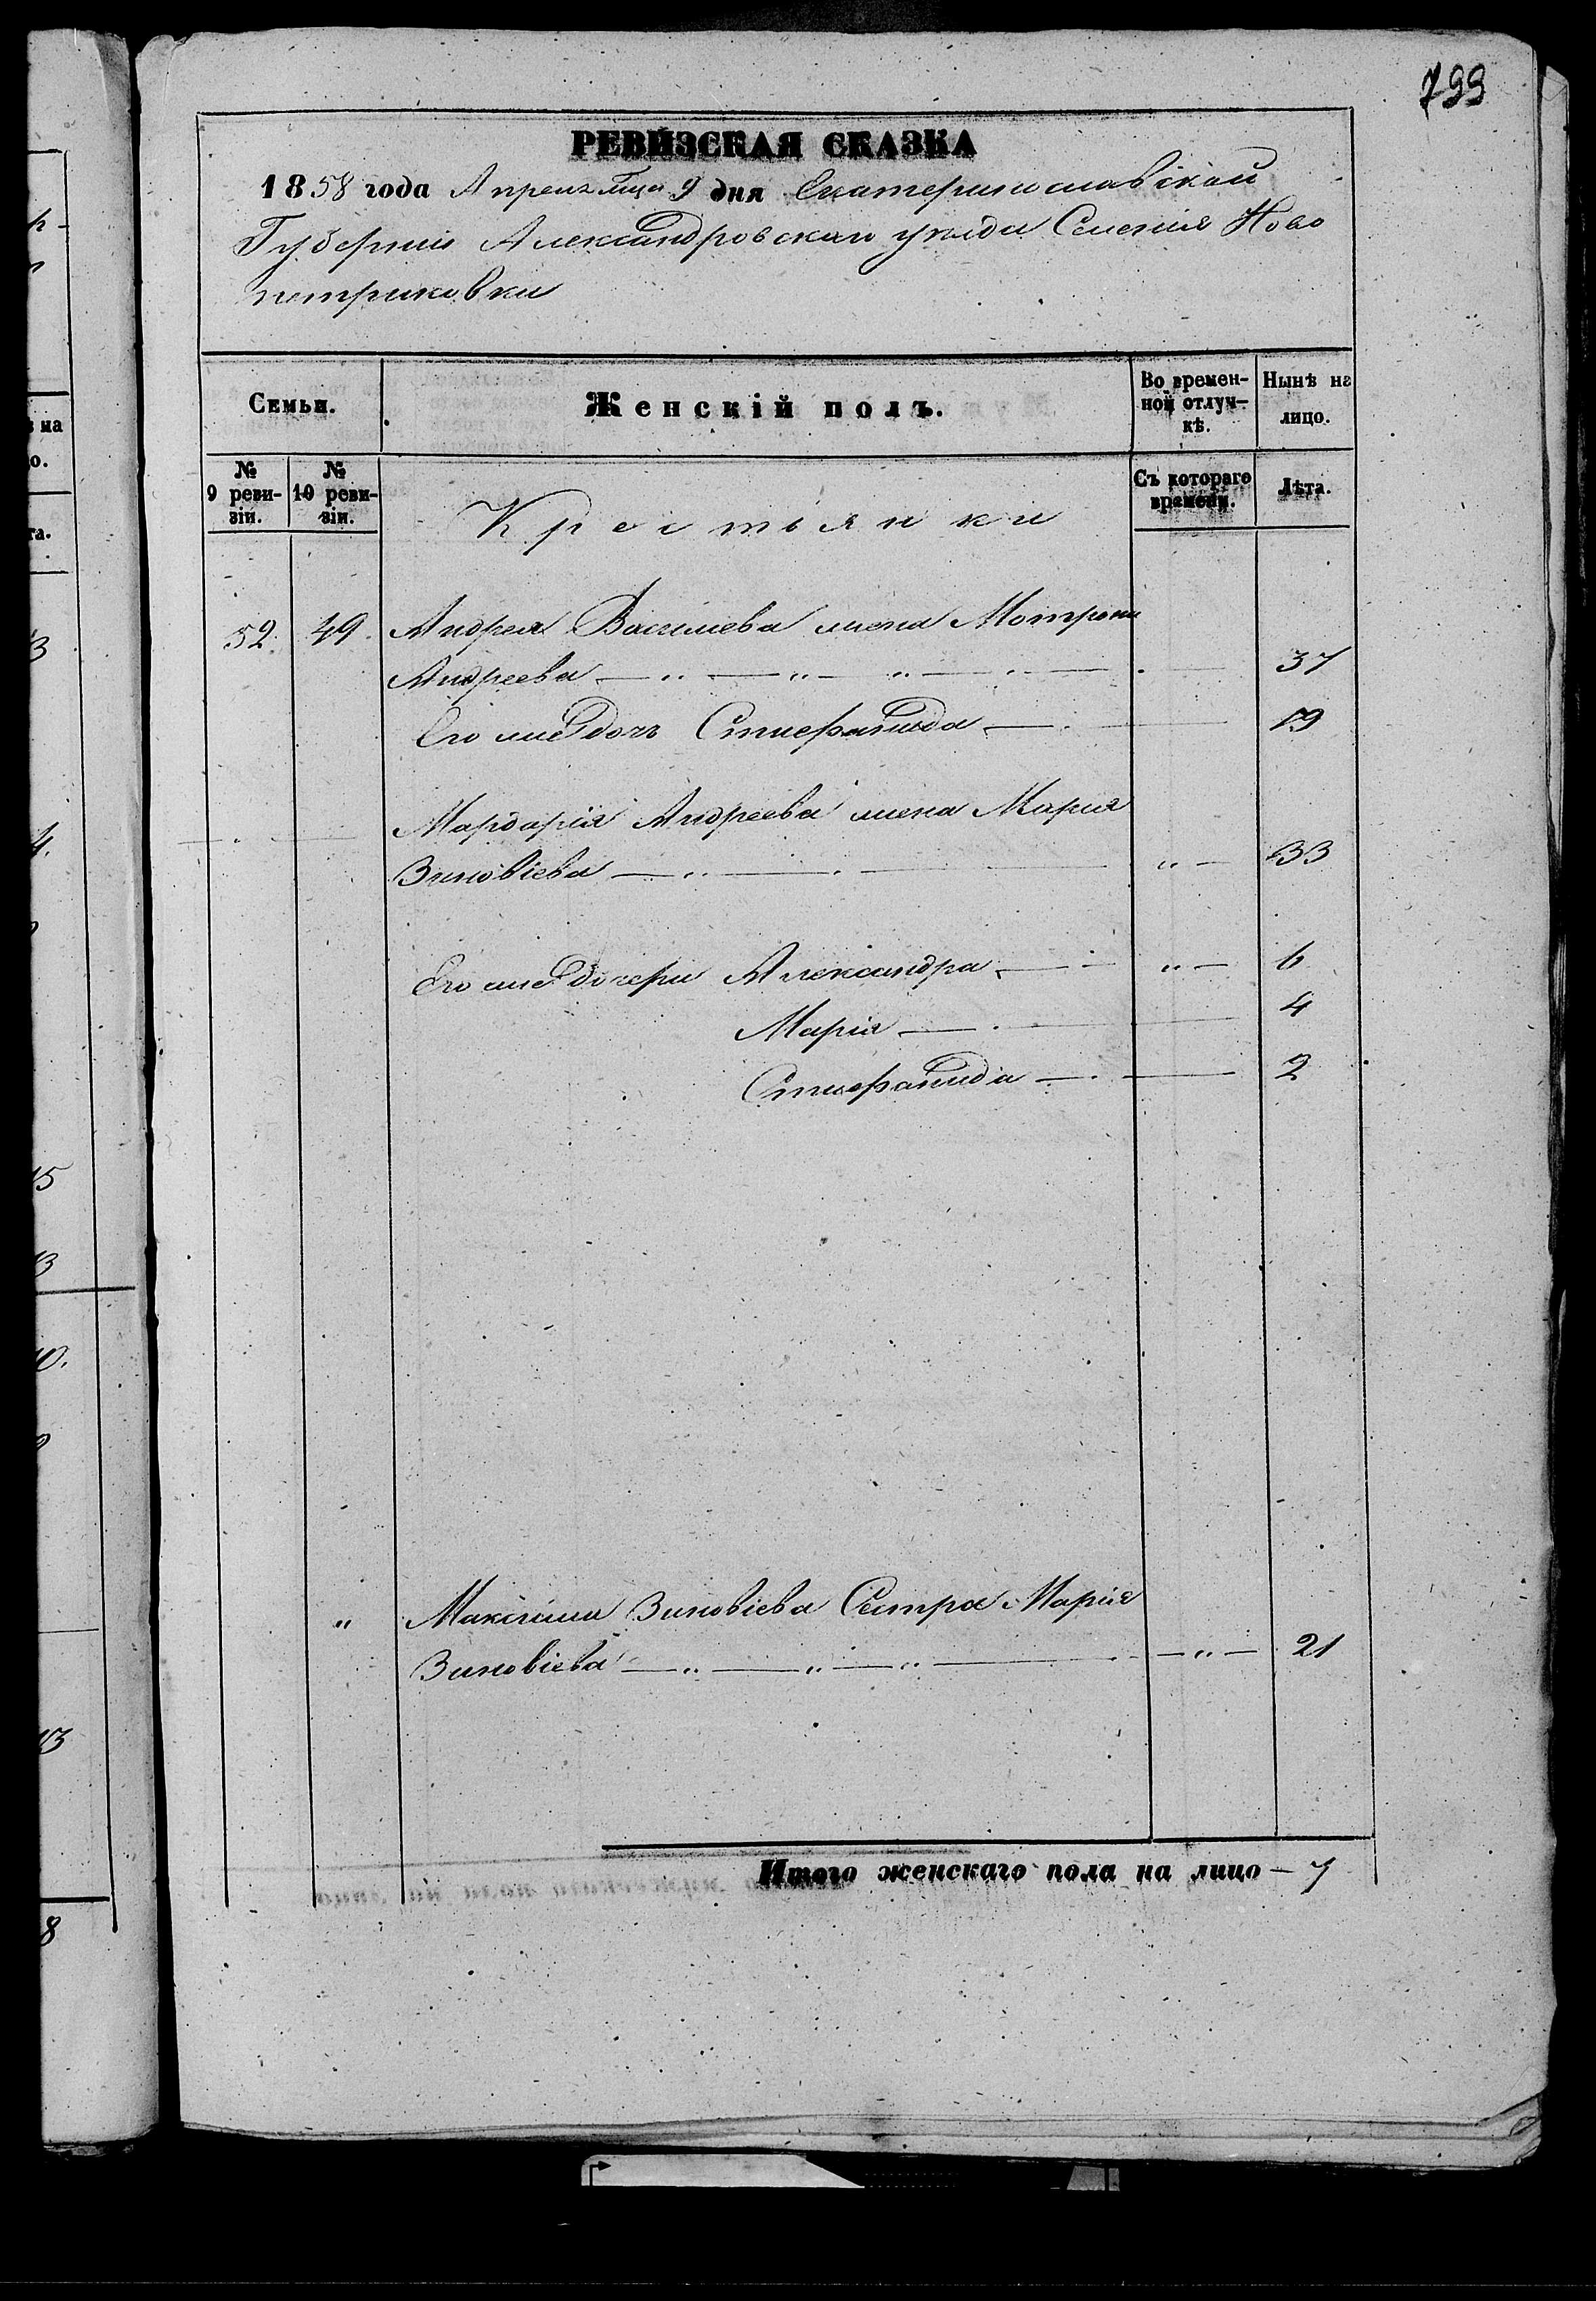 799
РЕВИЗСКАЯ СКАЗКА
1858 года Апреля м̃ца 9 дня Екатеринославской
Губернии Александровскаго уѣзда Селения Ново
петриковки
Семьи.
Женскій полъ.
Во времен-
ной отлуч-
кѣ.
Нынѣ на
лицо.
№
9 реви-
зіи.
№
10 реви-
зіи.
Крестьянки
Съ котораго
времени.
Лѣта.
52. 49. Андрея Василиева жена Мотрона
Андреева 37
Его же дочь Стиефанида 19
Мардарія Андреева жена Мария
Зиновіева 33
Его же дочери Александра 6
Марія 4
Стиефанида 2
„ Максима Зиновіева Сестра Марія
Зиновіева 21
Итого женскаго пола на лицо — 7
на
о.
та.
4.
15
13
10.
13
8